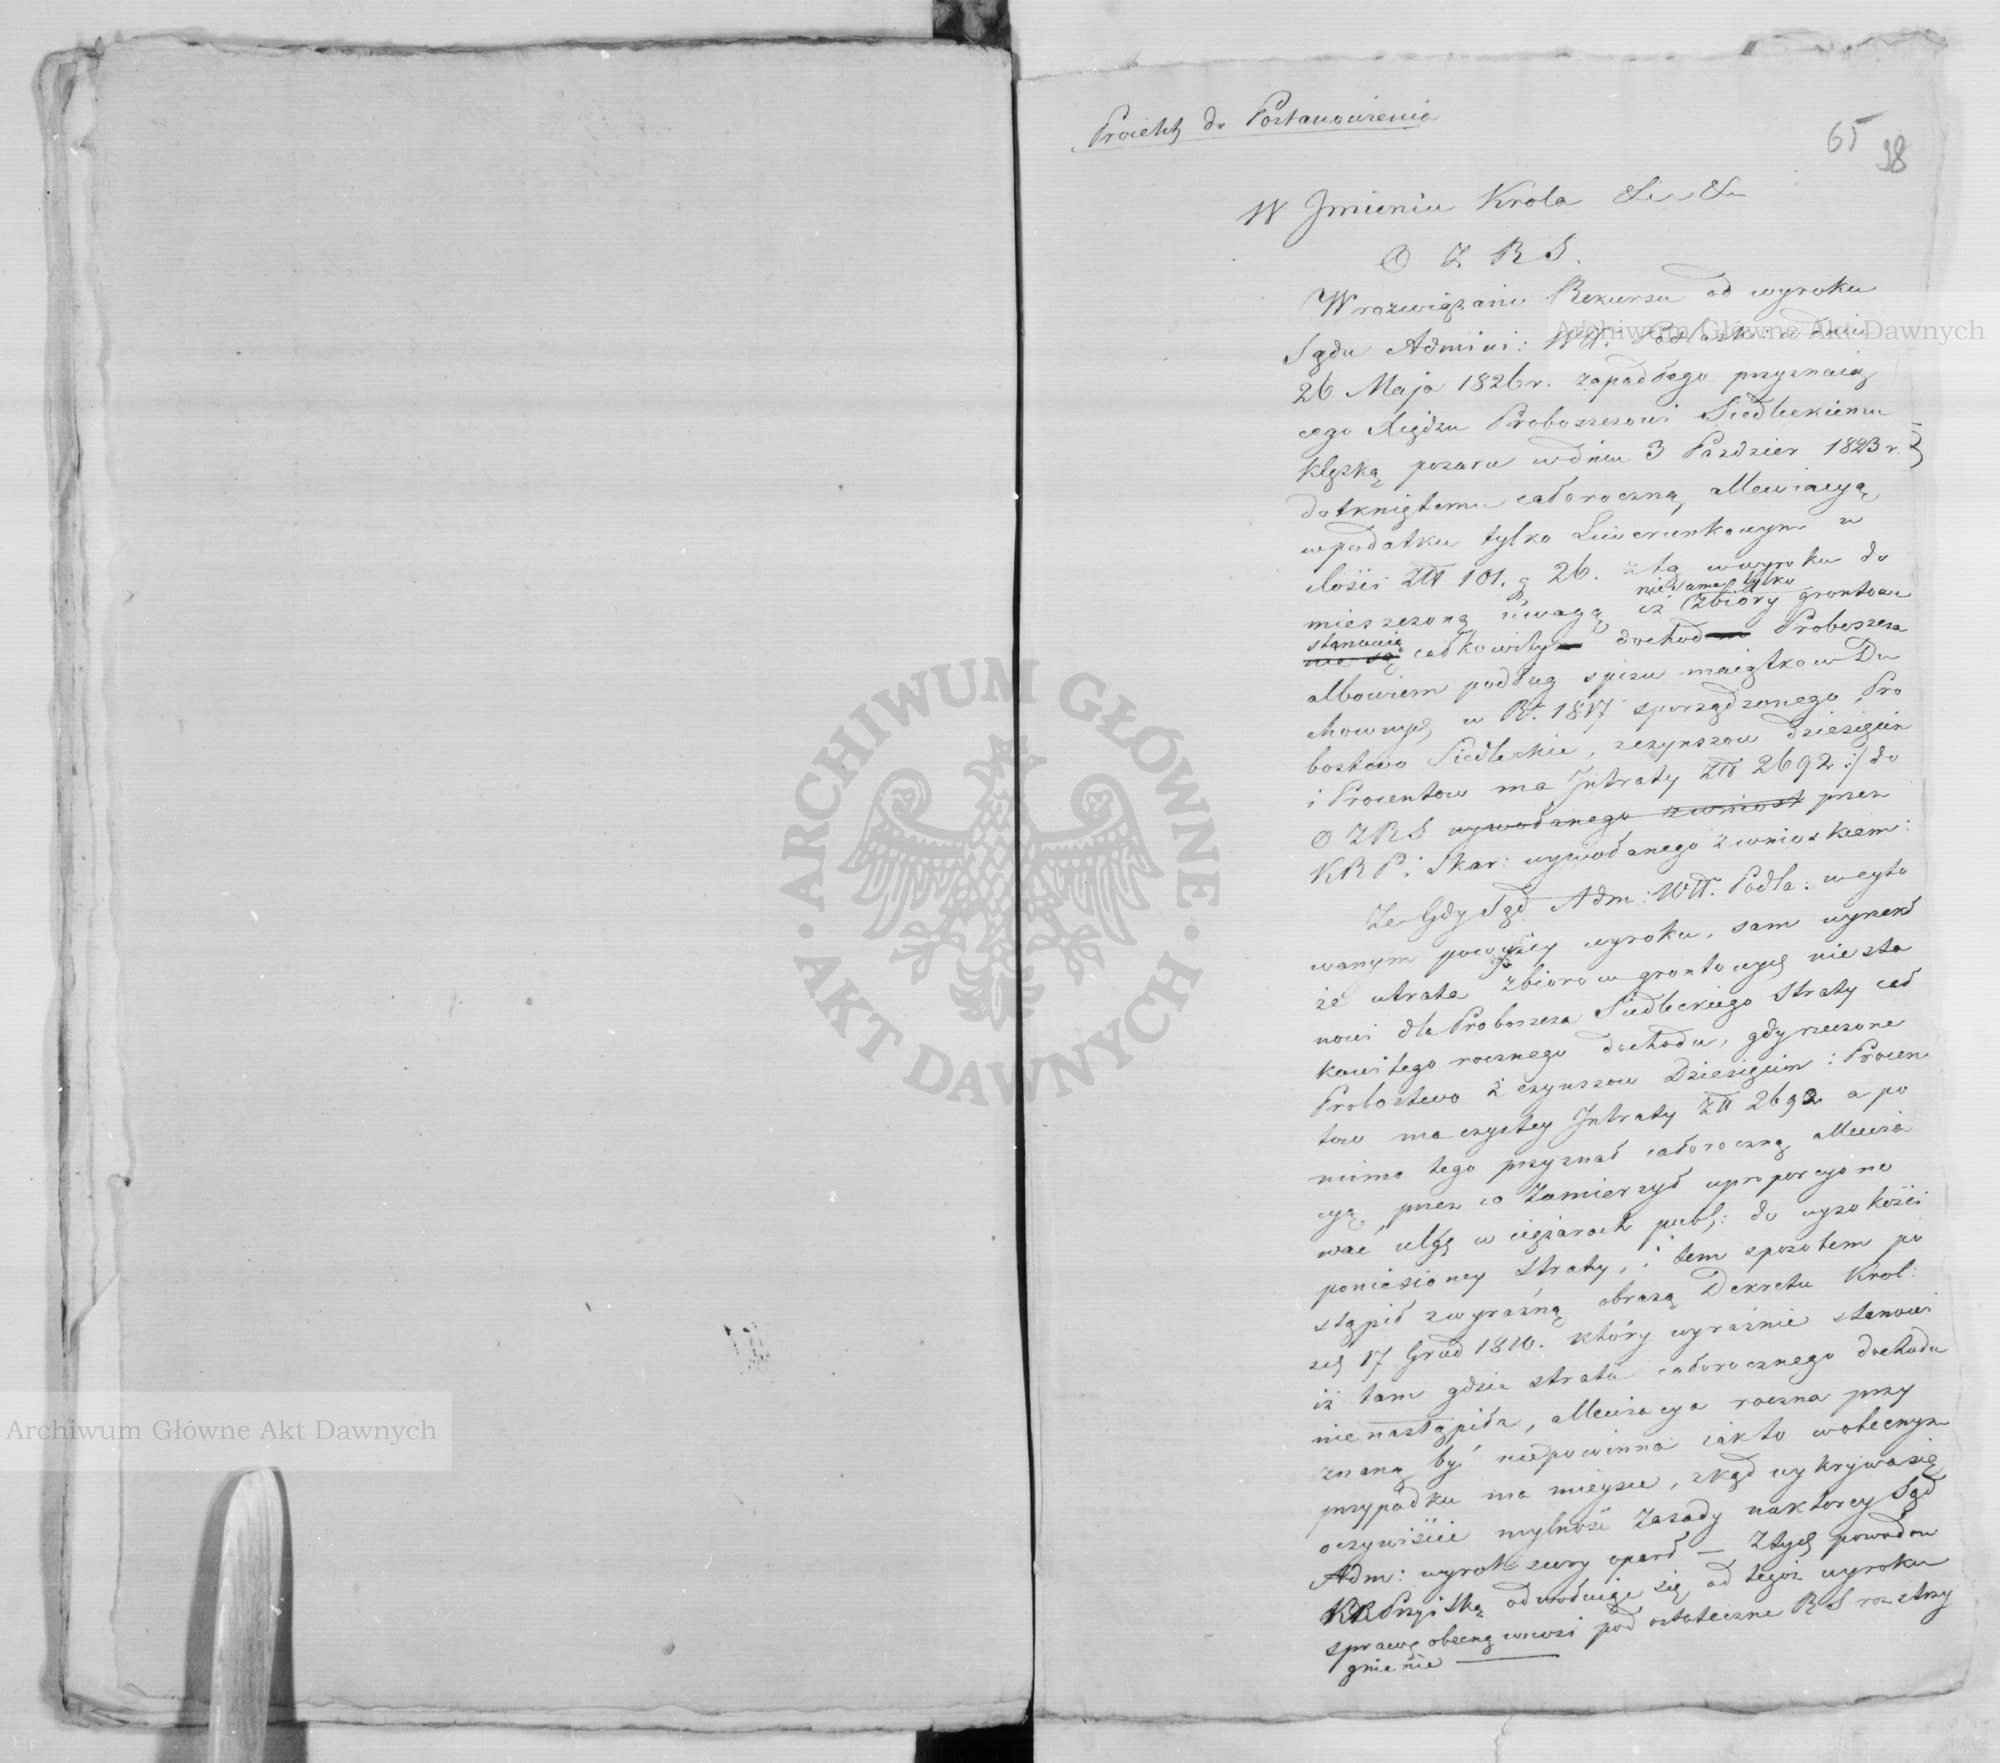 Proiekt do Postanowienia
65
98
W Jmieniu Krola &c &c
O Z R S.
W rozwiązaniu Rekursu od wyroku
Sądu Admini: Wtt. Podlask: w dniu
26 Maja 1826 r. zapadłego przyznaią
cego Xiędzu Proboszczowi Siedleckiemu
klęską pożaru w dniu 3 Paździer 1823 r.
dotkniętemu całoroczną allewiacyą
w podatku tylko Liwerunkowym w
ilości Złł 101. g 26. z tą w wyroku do
nie same tylko
mieszczoną uwagą iż zbiory grontowe
stanowią
nie są całkowity dochod Proboszcza
albowiem podług spisu maiątkow Du
chownych w Rº. 1817 sporządzonego Pro
bostwo Siedleckie, z czynszow dziesięcin
i Procentow ma Jntraty Złł 2692 :/ do
O Z R S wywołanego z wniosk przez
K R P i Skar: wywołanego z wnioskiem:
Ze Gdy Sąd Adm: Wtt. Podla: w cyto
wanym powyżey wyroku, sam wyrzekł
że utrata zbiorow grontowych nie sta
nowi dla Proboszcza Siedleckiego straty cał
kowitego rocznego dochodu, gdy rzeczone
Probostwo z czynszow Dziesięcin i Procen
tow ma czystey Jntraty Złł 2692 a po
mimo tego przyznał całoroczną allewia
cyą, przez co zamierzył uproporcyono
wać ulgę w ciężarach publ: do wysokości
poniesioney straty, i tem sposobem po
stąpił z wyraźną obrazą Dekretu Krol:
z dnia 17 Grud 1810. który wyraźnie stanowi
iż tam gdzie strata całorocznego dochodu
nie nastąpiła, allewiacya roczna przy
znaną być niepowinna iak to w obecnym
przypadku ma mieysce, zkąd wykrywa się
oczywiście mylność zasady na ktorey Sąd
Adm: wyrok swoy oparł — Z tych powodow
KRPrzyiSką odwołuie się od tegoż wyroku
sprawę obecną wnosi pod ostateczne R S rozstrzy
gnienie
Archiwum Główne Akt Dawnych
Archiwum Główne Akt Dawnych
ARCHIWUM GŁÓWNE · AKT DAWNYCH ·